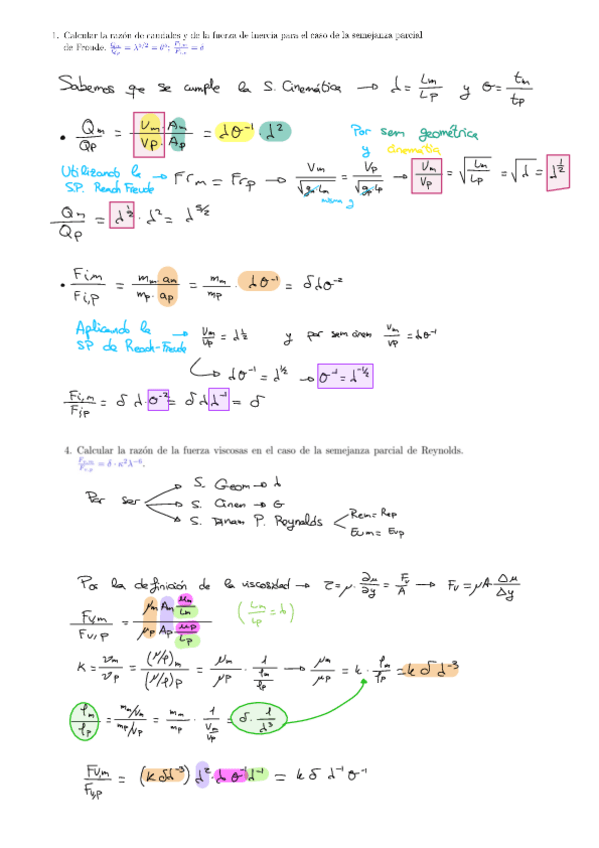 1. Calcular la razón de caudales y de la fuerza de inercia para el caso de la semejanza parcial
de Froude. Qm/Qp = λ^5/2 = θ^5; Fi,m/Fi,p = δ
Sabemos que se cumple la S. Cinemática → λ = Lm/Lp y σ = tm/tp
• Qm/Qp = Vm·Am/Vp·Ap = λσ⁻¹·λ²
Por sem geométrica
y cinemática
Utilizando la
SP. Reach Freude → Frm = Frp → Vm/√gm Lm = Vp/√gp Lp → Vm/Vp = √Lm/Lp = √λ = λ^1/2
misma g
Qm/Qp = λ^1/2 · λ² = λ^5/2
• Fi,m/Fi,p = mm·am/mp·ap = mm/mp · λσ⁻¹ = δλσ⁻²
Aplicando la
SP de Reach-Freude → Vm/Vp = λ^1/2 y por sem cinem Vm/Vp = λσ⁻¹
↳ λσ⁻¹ = λ^1/2 → σ⁻¹ = λ^-1/2
Fi,m/Fi,p = δ λ·σ⁻² = δ λ λ⁻¹ = δ
4. Calcular la razón de la fuerza viscosas en el caso de la semejanza parcial de Reynolds.
Por ser
S. Geom → λ
S. Cinem → σ
S. Dinam P. Reynolds
Rem = Rep
Eum = Eup
Por la definición de la viscosidad → τ = μ·∂u/∂y = Fv/A → Fv = μA Δu/Δy
Fv,m/Fv,p = μm Am um/Lm / μp Ap up/Lp (Lm/Lp = λ)
K = νm/νp = (μ/ρ)m/(μ/ρ)p = μm/μp · 1/(ρm/ρp) → μm/μp = k·ρm/ρp = k δ λ⁻³
ρm/ρp = mm/Vm / mp/Vp = mm/mp · 1/(Vm/Vp) = δ·1/λ³
Fv,m/Fv,p = (k δλ⁻³) λ²·λσ⁻¹λ⁻¹ = k δ λ⁻¹σ⁻¹